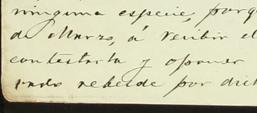 ninguna especie, porq
de Marzo, á recibir el
contestarla y oponer
rado rebelde por dich